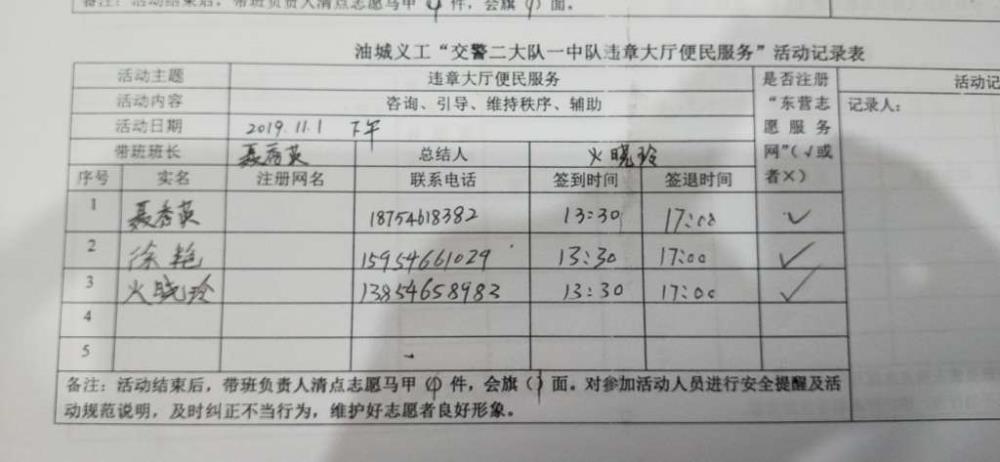 备注：活动结束后，带班负责人清点志愿马甲 件，会旗（1）面。
油城义工“交警二大队一中队违章大厅便民服务”活动记录表
活动主题 违章大厅便民服务 是否注册“东营志愿服务网”（√或者×） 活动记
活动内容 咨询、引导、维持秩序、辅助 记录人：
活动日期 2019.11.1 下午
带班班长 聂秀英 总结人 火晓玲
序号 实名 注册网名 联系电话 签到时间 签退时间
1 聂秀英 18754618382 13:30 17:00 ✓
2 徐艳 15954661029 13:30 17:00 ✓
3 火晓玲 13854658983 13:30 17:00 ✓
4
5
备注：活动结束后，带班负责人清点志愿马甲（4）件，会旗（1）面。对参加活动人员进行安全提醒及活
动规范说明，及时纠正不当行为，维护好志愿者良好形象。